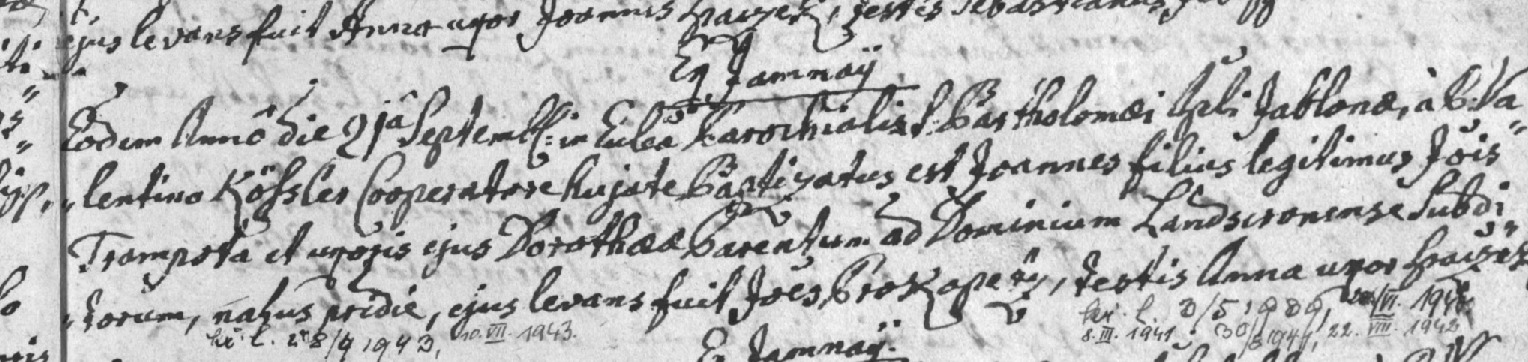 ejus levans fuit Anna uxor Joannis
Ex Jamnaÿ
Eodem Annô die 21jâ Septembr: in Eccla Parochiali S: Bartholomæi Apli Jablonæ, à P: Va
lentino Kößler Cooperatore hujate Baptizatus est Joannes filius legitimus Jois
Trampota et uxoris ejus Dorothææ Parentum ad Dominium Landscronense Subdi
torum, natus pridie, ejus levans fuit Joes Prokope, testis Anna uxor
kř. l. 28/4 1943, 10. VII. 1943. kř. l. 2/5 1939,
8. III. 1941, 22. VIII. 1942
Ex Jamnaÿ.